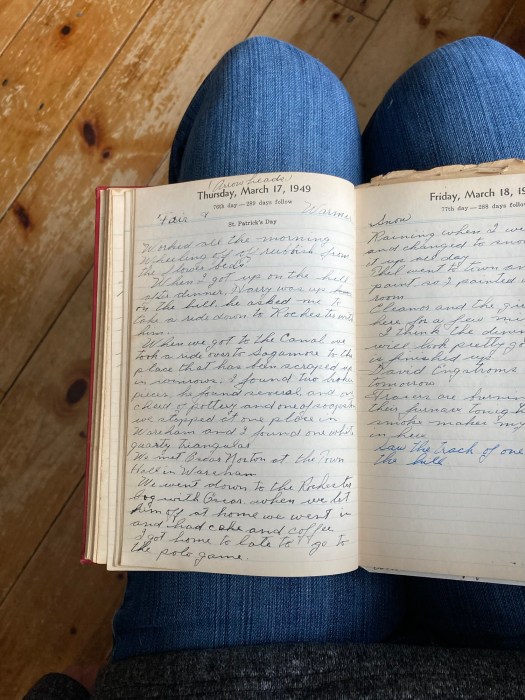 Arrowheads
Thursday, March 17, 1949
76th day — 289 days follow
Fair & Warmer
St. Patrick's Day
Worked all the morning
Wheeling off of rubbish from
the flower beds.
When I got up on the hill
after dinner, Harry was up
on the hill, he asked me to
take a ride down to Rochester with
him.
When we got to the Canal we
took a ride over to Sagamore to the
place that has been scraped up
in windrows. I found two broken
pieces, he found several, and one
of pottery and one of soapstone
we stopped at one place in
Wareham and I found one white
quartz triangular
We met Oscar Norton at the Town
Hall in Wareham
We went down to the Rochester
bog with Oscar. when we let
him off at home we went in
and had cake and coffee
I got home to late to go to
the polo game.
Friday, March 18, 19
77th day — 288 days follow
Snow
Raining when I
and changed to snow
it up all day
Thel went to town an
paint, so I painted
room
Eleanor and the
here for a few min
I think the
will look pretty go
is finished up
David Engstroms
tomorrow
are burning
their furnace tonight
smoke makes my
in here
saw the track of one
the hill